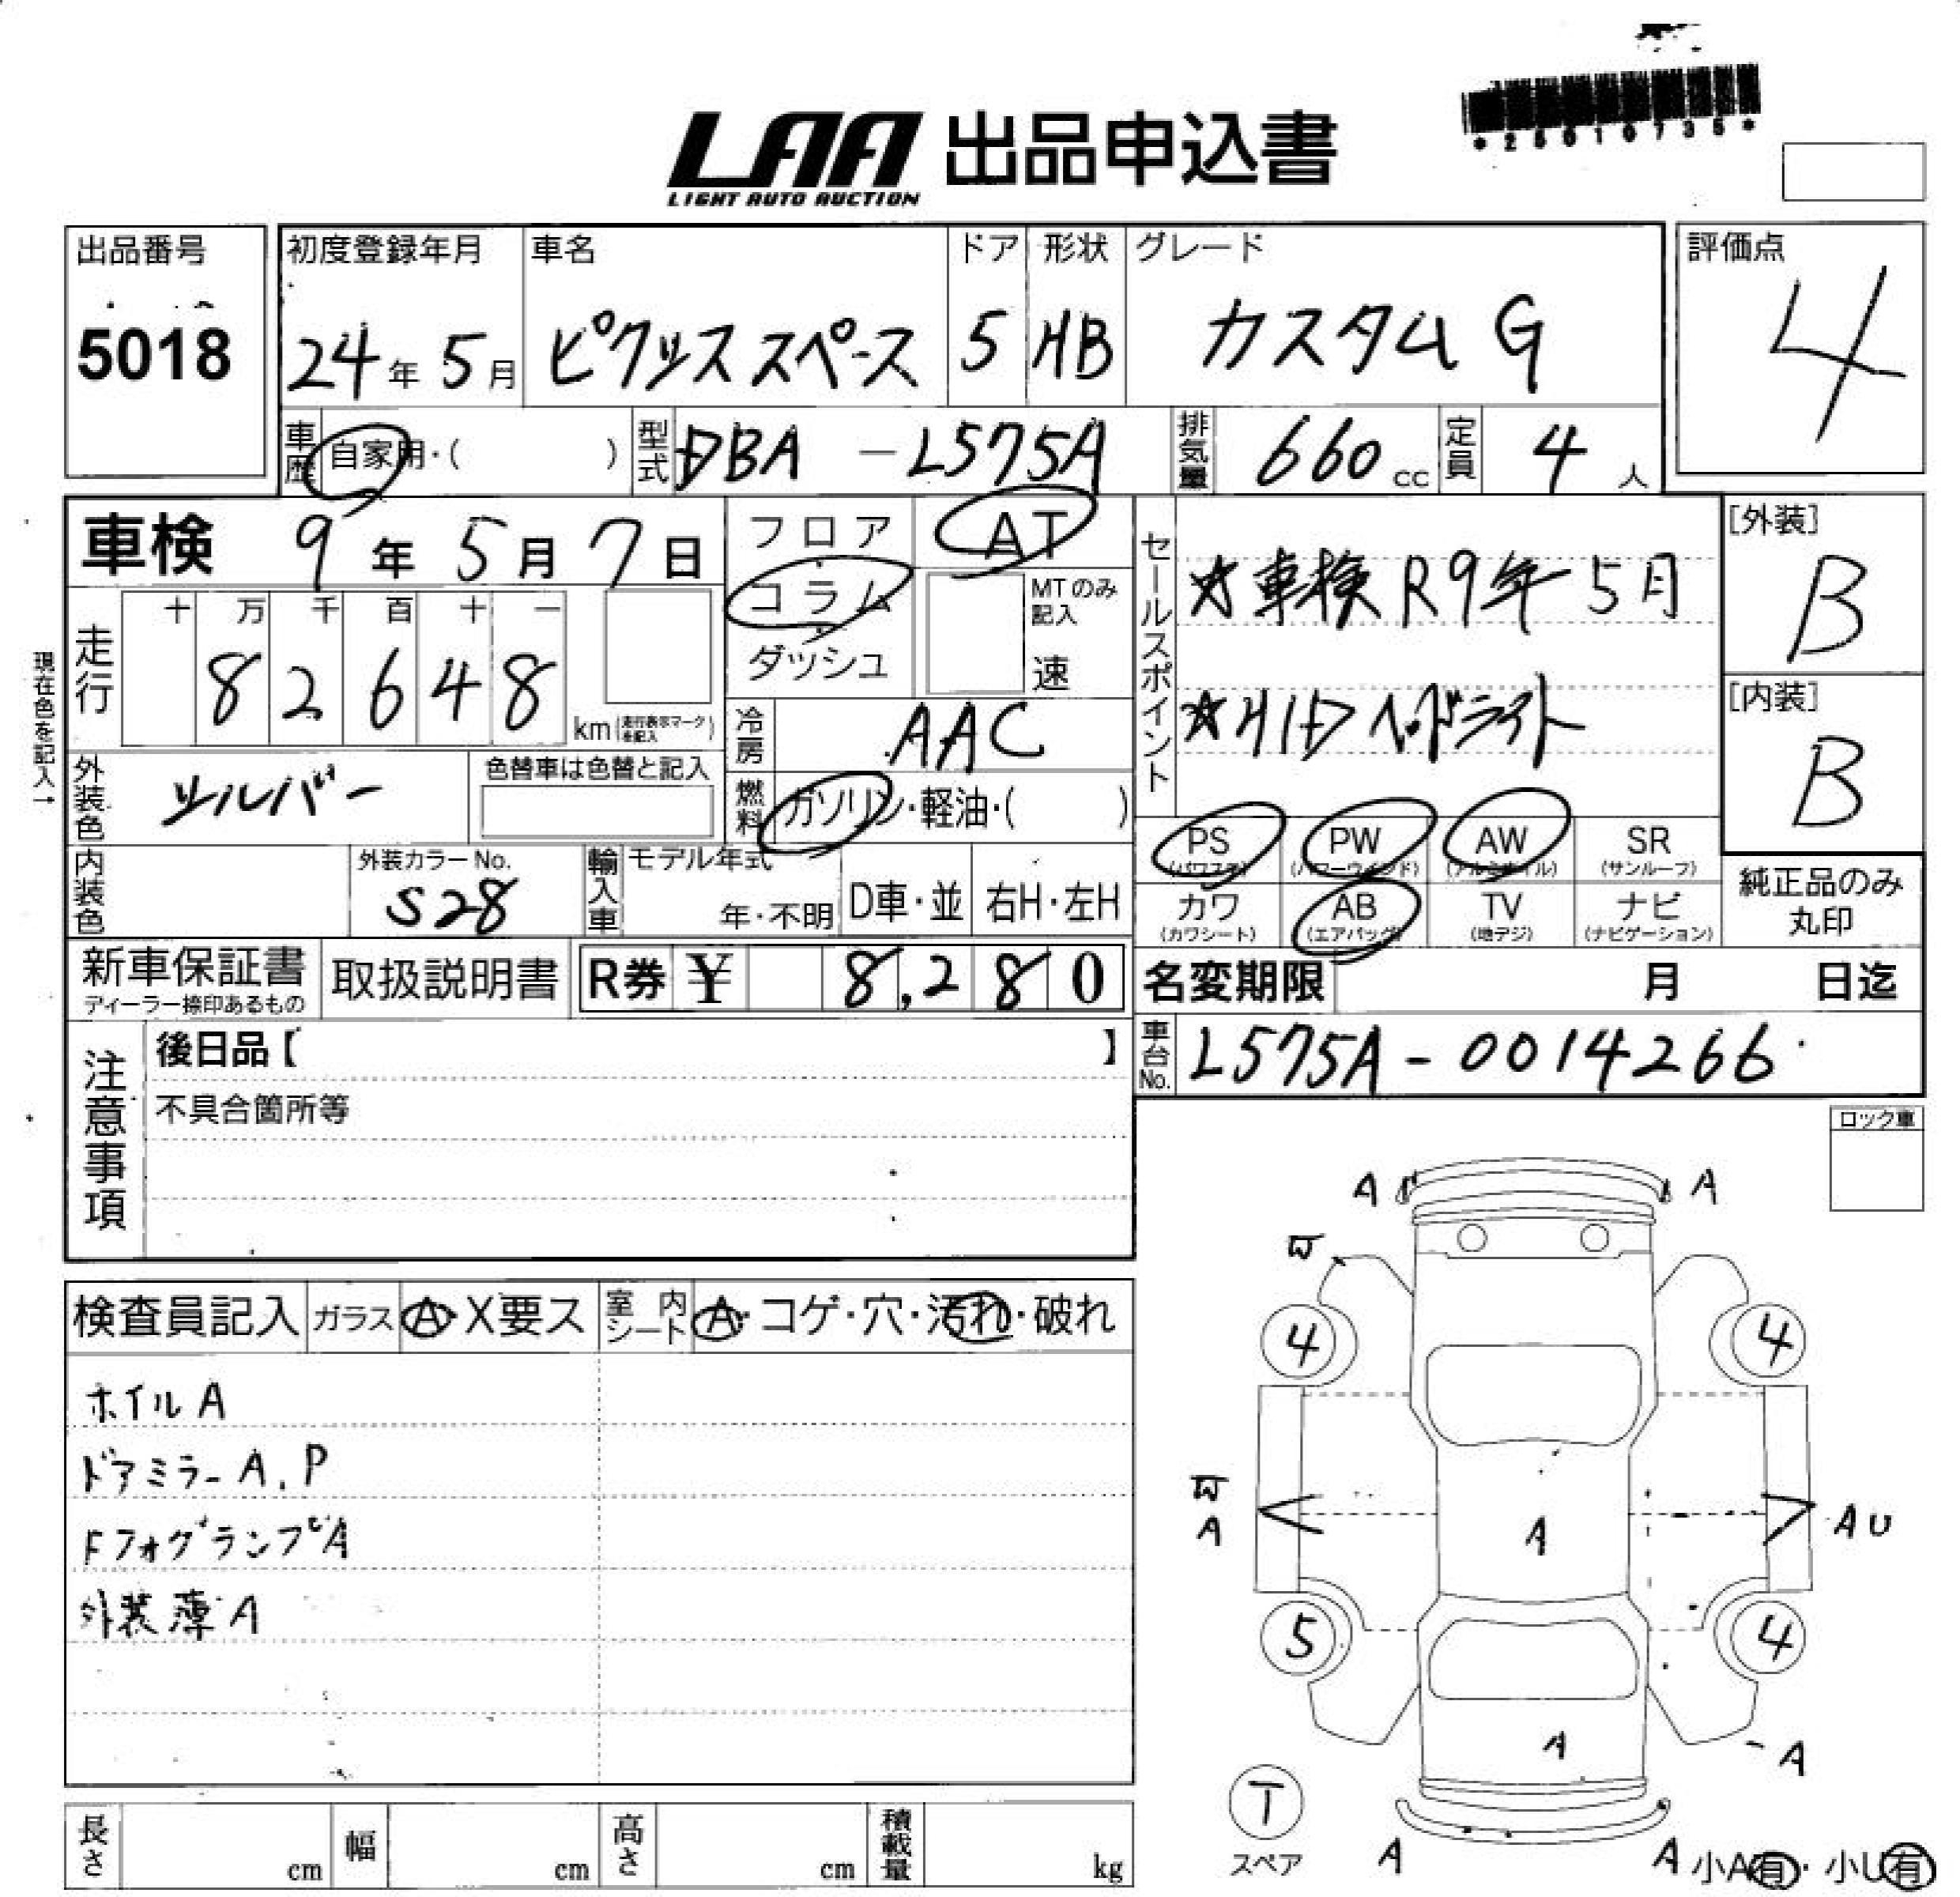 LAA 出品申込書
LIGHT AUTO AUCTION
*25010735*
出品番号
5018
初度登録年月
24年5月
車名
ピクシススペース
ドア
5
形状
HB
グレード
カスタムG
評価点
4
車歴 自家用・( )
型式 DBA-L575A
排気量 660cc
定員 4人
車検 9年5月7日
フロア
コラム
ダッシュ
AT
MTのみ記入
速
セールスポイント
☆車検R9年5月
☆HIDヘッドライト
[外装]
B
[内装]
B
現在色を記入→
走行
十 万 千 百 十 一
8 2 6 4 8
km(走行表示マークを記入)
冷房 AAC
燃料 ガソリン・軽油・( )
外装色 シルバー
色替車は色替と記入
PS (パワステ)
PW (パワーウインド)
AW (アルミホイル)
SR (サンルーフ)
カワ (カワシート)
AB (エアバッグ)
TV (地デジ)
ナビ (ナビゲーション)
純正品のみ
丸印
内装色
外装カラーNo.
S28
輸入車
モデル年式
年・不明
D車・並
右H・左H
新車保証書
ディーラー捺印あるもの
取扱説明書
R券 ¥ 8,280
名変期限 月 日迄
車台No. L575A-0014266
注意事項
後日品【 】
不具合箇所等
ロック車
検査員記入
ガラス A・X要ス
室内シート A・コゲ・穴・汚れ・破れ
ホイルA
ドアミラーA.P
Fフォグランプ A
外装薄A
A A
W
4 4
W
A
A
AU
5 4
A
A
T
スペア
A A
小A有・小U有
長さ cm
幅 cm
高さ cm
積載量 kg